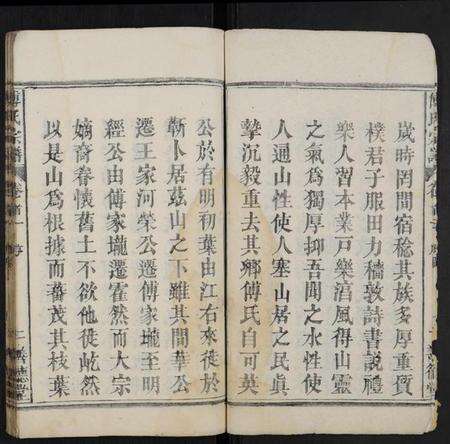 傅氏宗譜 卷首
歲時罔間宿稔其族多厚重質
樸君子服田力穡敦詩書說禮
衆人習本業戸樂風得山靈
之氣爲獨厚抑吾聞之水性使
人通山性使人塞山居之民眞
摯沉毅重去其鄉傅氏自可英
公於有明初葉由江右來徙於
蘄卜居茲山之下雖其間華公
遷王家河榮公遷傅家壠至明
經公由傅家壠遷霍然而大宗
嫡裔眷懷舊土不欲他徙屹然
以是山爲根據而蕃茂其枝葉
傅氏宗譜 卷首一 序